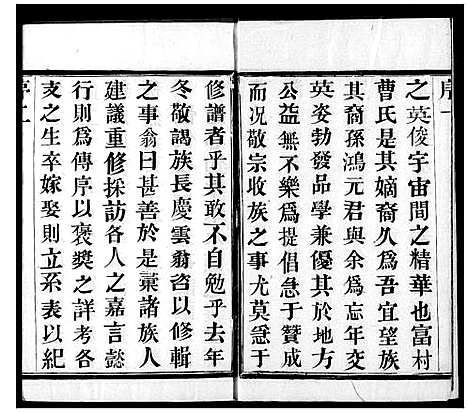 之英俊宇宙間之精華也富村
曹氏是其嫡裔久爲吾宜望族
其裔孫鴻元君與余爲忘年交
英姿勃發品學兼優其於地方
公益無不樂爲提倡急于贊成
而况敬宗收族之事尤莫急于
修譜者乎其敢不自勉乎去年
冬敬謁族長慶雲翁咨以修輯
之事翁曰甚善於是稟諸族人
建議重修採訪各人之嘉言懿
行則爲傳序以褒獎之詳考各
支之生卒嫁娶則立系表以紀